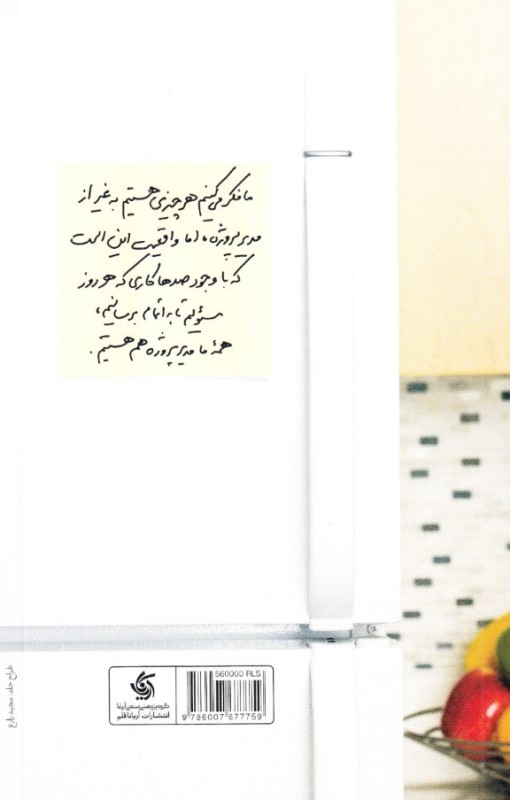 ما فکر می‌کنیم هر چیزی هستیم به غیر از
مدیر پروژه، اما واقعیت این است
که با وجود صدها کاری که هر روز
مسئولیم تا به اتمام برسانیم،
همهٔ ما مدیر پروژه هم هستیم.
560000 RLS
9 786007 677759
گروه پژوهشی صنعتی آریانا
انتشارات آریاناقلم
طراح جلد: مجید زارع